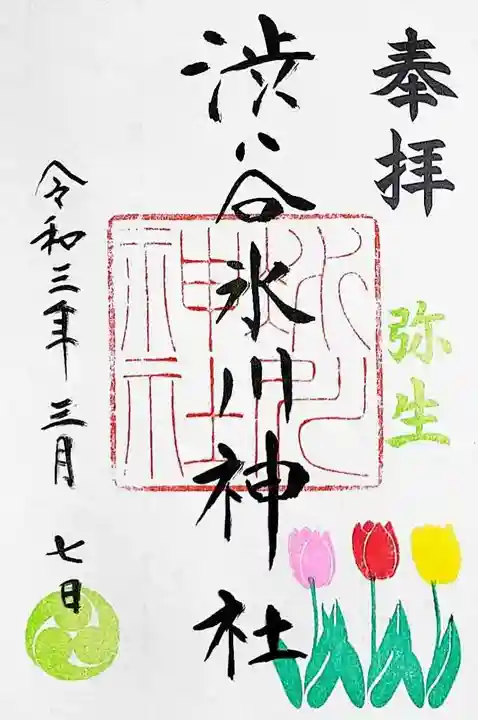 奉拝
弥生
渋谷氷川神社
氷川
神社
令和三年三月七日